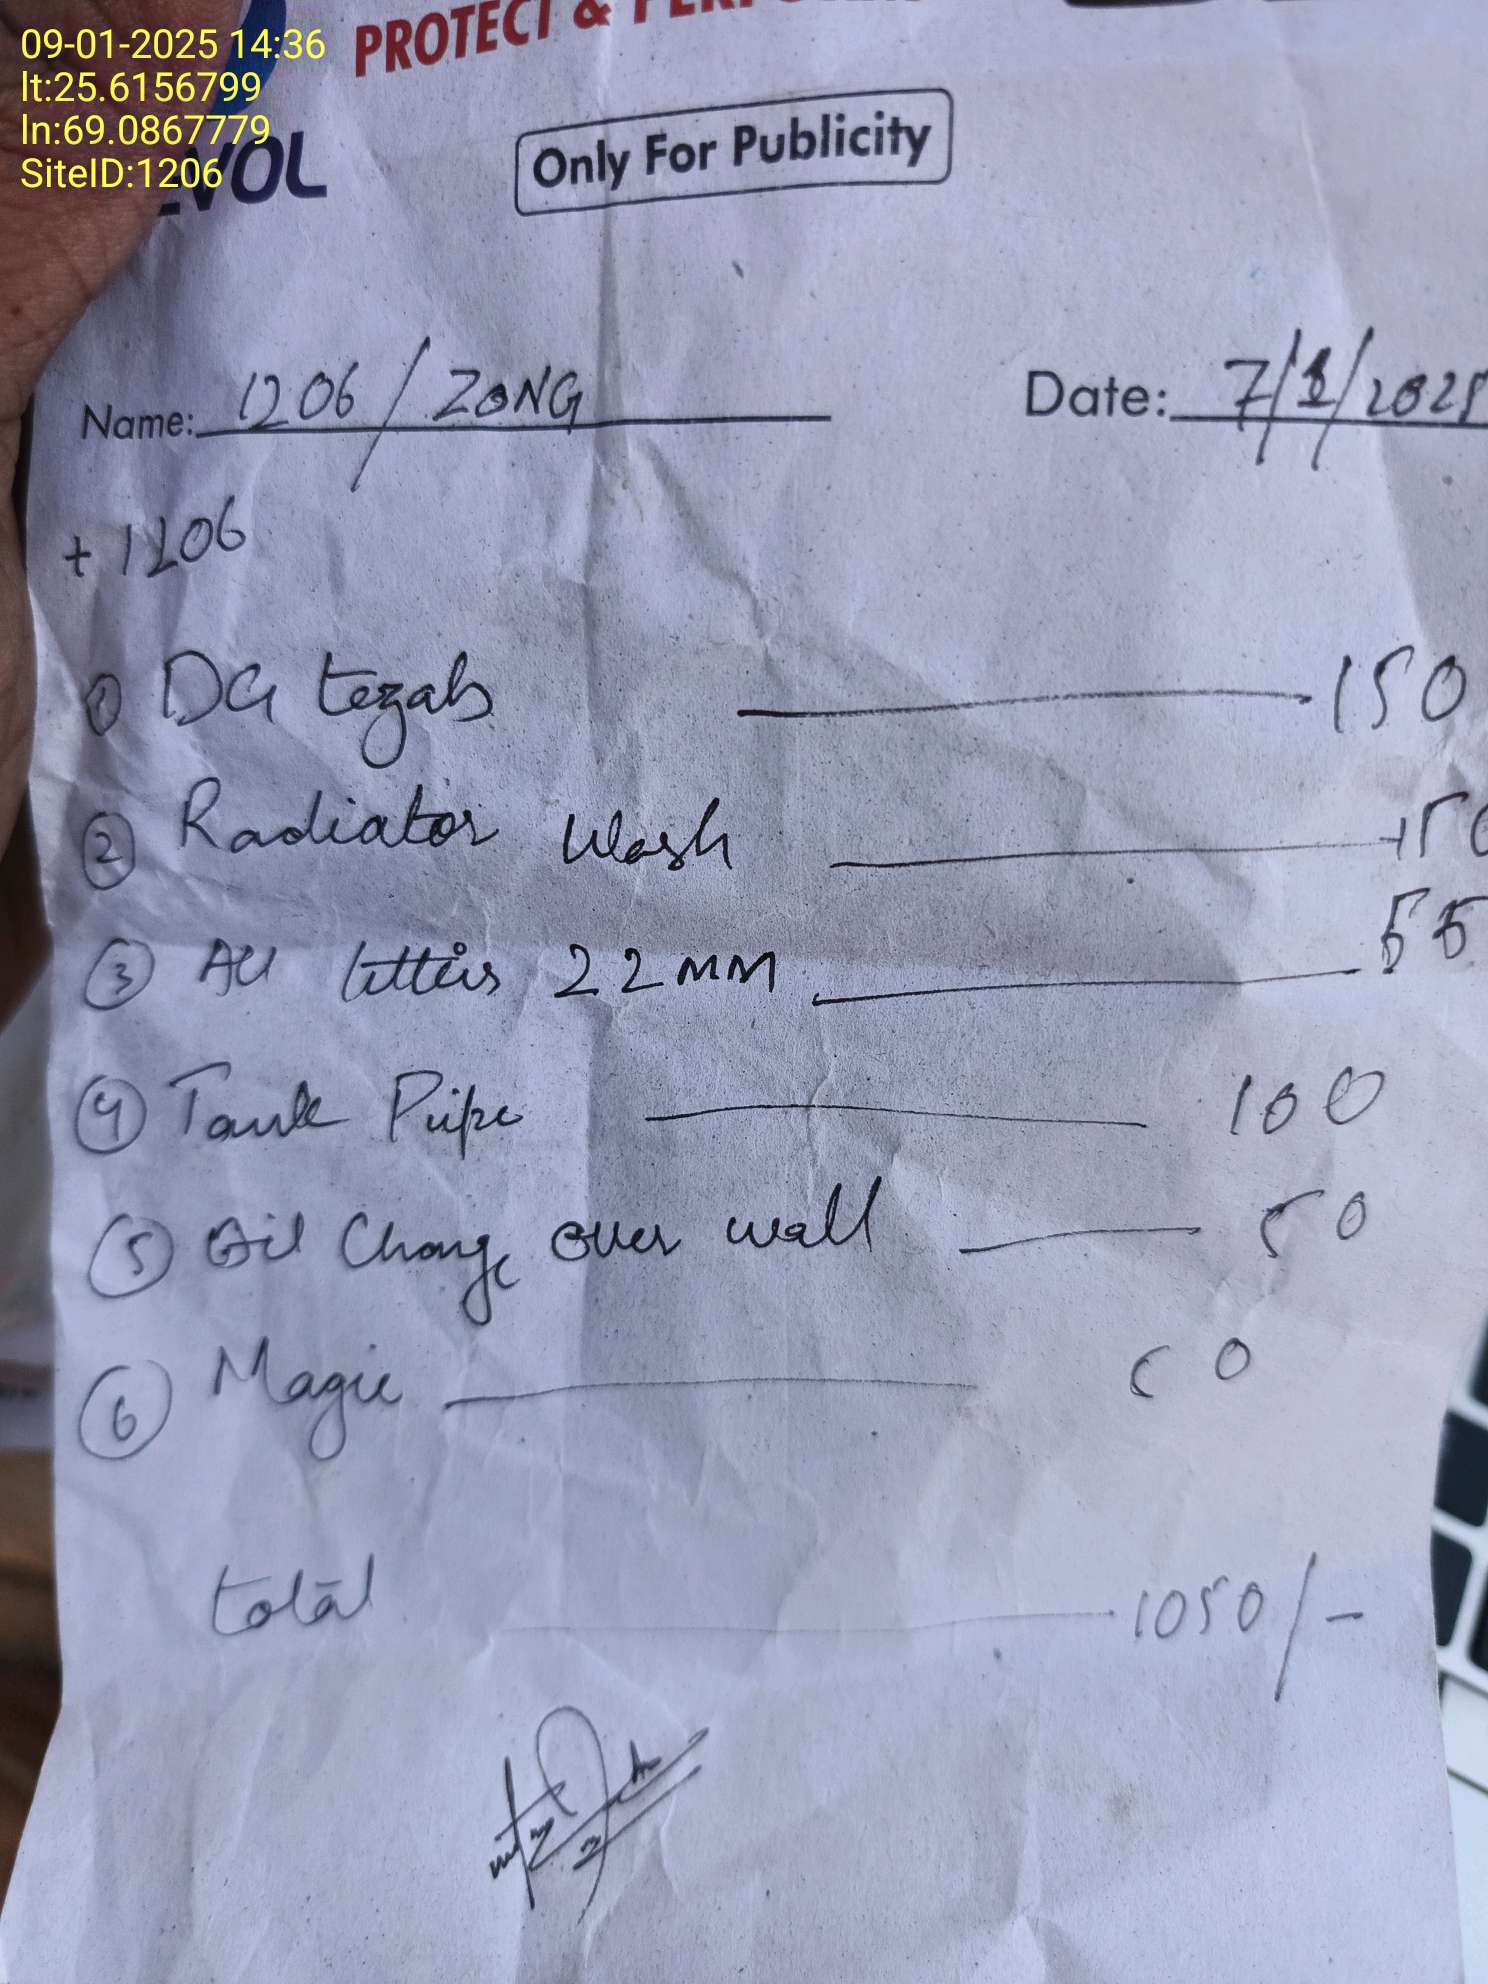 09-01-2025 14:36
lt:25.6156799
ln:69.0867779
SiteID:1206
PROTECT &
VOL
Only For Publicity
Name: 1206 / ZONG Date: 7/1/2025
+ 1206
① DG tezab 150
② Radiator Wash
③ 22MM 55
④ Tank Pipe 100
⑤ Oil Change over wall 50
⑥ Magic
total 1050/-